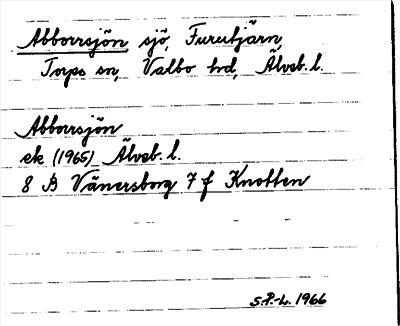 Abborrsjön sjö, Furutjärn,
Torps sn, Valbo hd, Älvsb. l.
Abborrsjön
ek (1965) Älvsb. l.
8 B Vänersborg 7 f Knotten
S.P.-L. 1966